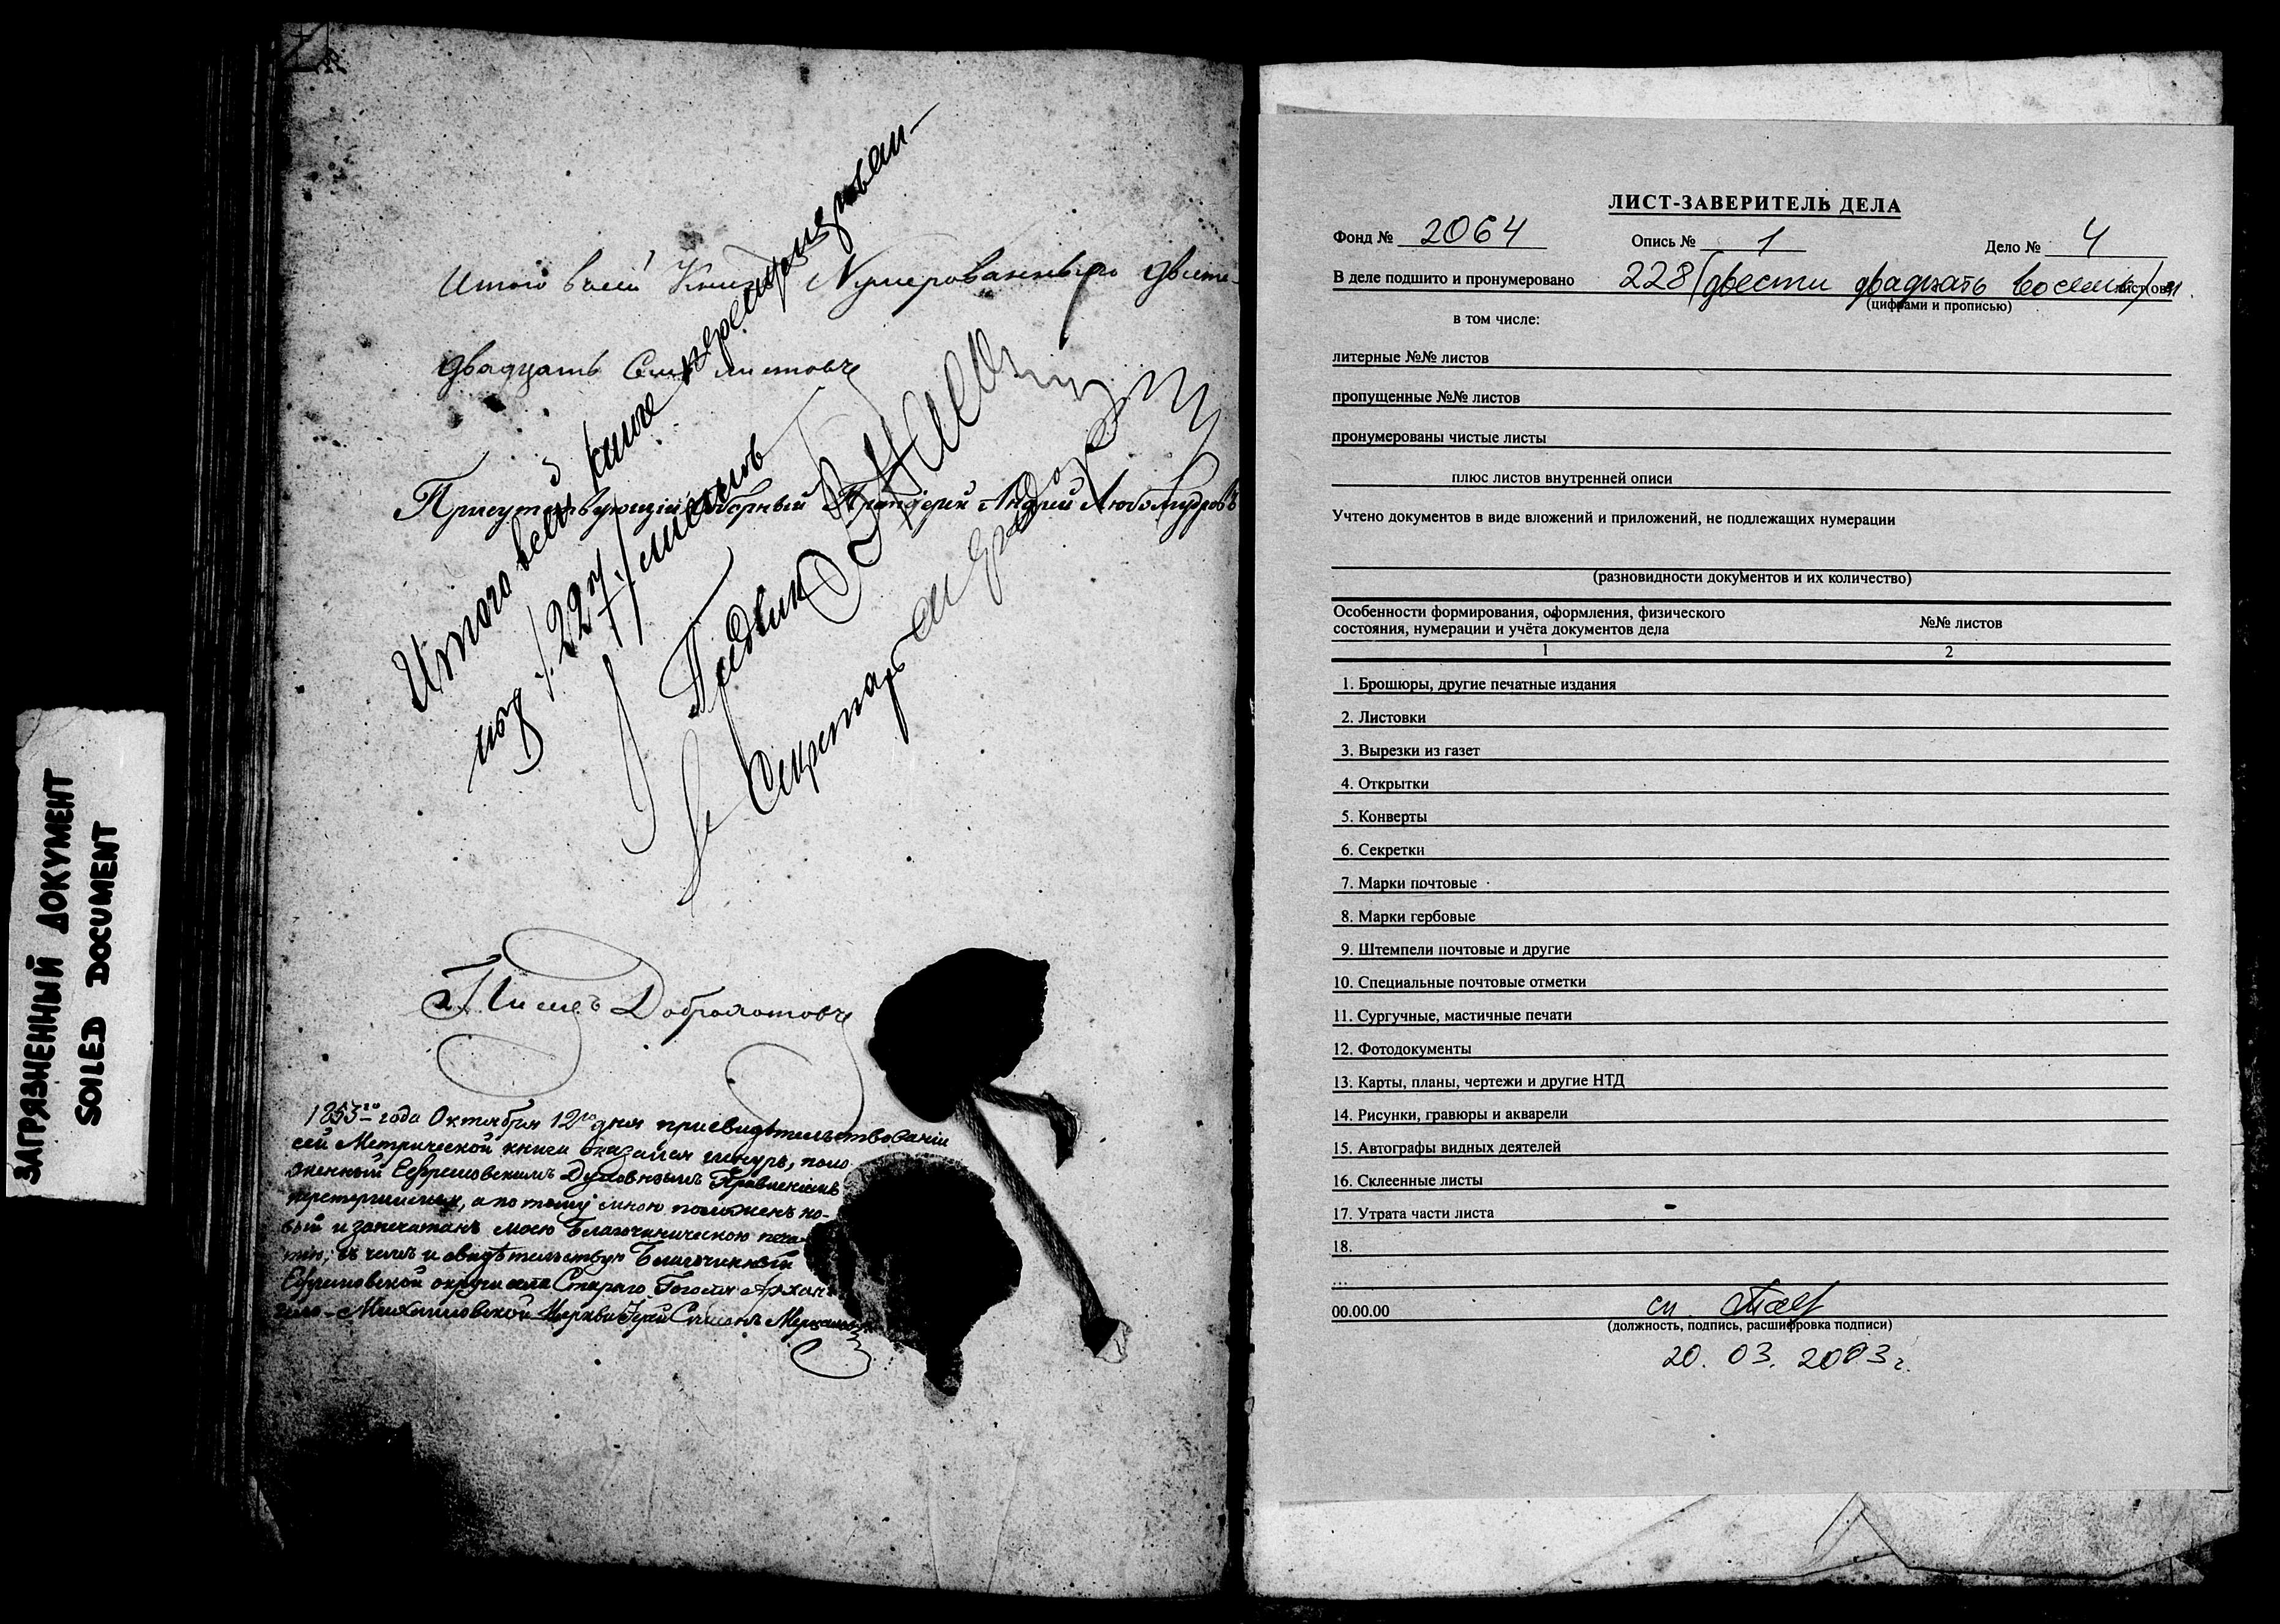 ЗАГРЯЗНЕННЫЙ ДОКУМЕНТ
SOILED DOCUMENT
Итого всей Книге Нумерованныхъ двести
двадцать Семь листовъ
Присутствующій Соборный Протоіерей Андрей Любомудровъ
Итого всей книге перенумерован-
ных /227/ листов
Секретарь
Писецъ Доброхотовъ
1853го года Октября 12го дня присвидѣтельствованіи
сей Метрической книги оказался шнуръ, поло
женный Ефремовскимъ Духовнымъ Правленіемъ
перетершимся, а по тому мною положенъ но-
вый и запечатанъ моею Благочинническою печа-
тію; въ чемъ и свидѣтельствую Благочинный
Ефремовской округи села Стараго Гоголя Архан-
гело-Михаиловской Церкви Іерей Симеонъ
ЛИСТ-ЗАВЕРИТЕЛЬ ДЕЛА
Фонд № 2064 Опись № 1 Дело № 4
В деле подшито и пронумеровано 228 (двести двадцать восемь) лист(ов)
(цифрами и прописью)
в том числе:
литерные №№ листов
пропущенные №№ листов
пронумерованы чистые листы
плюс листов внутренней описи
Учтено документов в виде вложений и приложений, не подлежащих нумерации
(разновидности документов и их количество)
Особенности формирования, оформления, физического
состояния, нумерации и учёта документов дела №№ листов
1 2
1. Брошюры, другие печатные издания
2. Листовки
3. Вырезки из газет
4. Открытки
5. Конверты
6. Секретки
7. Марки почтовые
8. Марки гербовые
9. Штемпели почтовые и другие
10. Специальные почтовые отметки
11. Сургучные, мастичные печати
12. Фотодокументы
13. Карты, планы, чертежи и другие НТД
14. Рисунки, гравюры и акварели
15. Автографы видных деятелей
16. Склеенные листы
17. Утрата части листа
18.
...
00.00.00
(должность, подпись, расшифровка подписи)
20. 03. 2003 г.